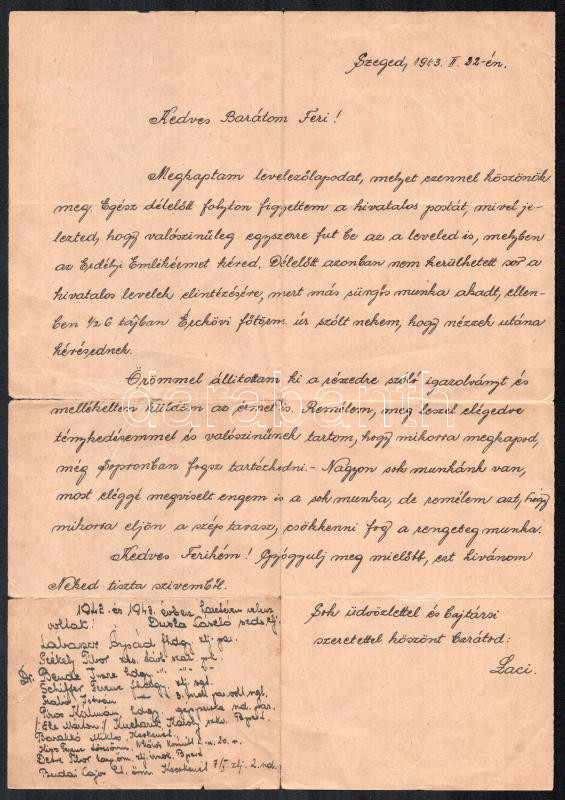 Szeged, 1943. II. 22-én.
Kedves Barátom Feri!
Megkaptam levelezőlapodat, melyet ezennel köszönök
meg. Egész délelőtt folyton figyeltem a hivatalos postát, mivel je-
lezted, hogy valószinűleg egyszerre fut be az a leveled is, melyben
az Erdélyi Emlékérmet kéred. Délelőtt azonban nem kerülhetett sor a
hivatalos levelek elintézésére, mert más sürgős munka akadt, ellen-
ben ½ 6 tájban Érckövi főtörm. úr szólt nekem, hogy nézzek utána
kérésednek.
Örömmel állitottam ki a részedre szóló igazolványt és
mellékelten küldöm az érmet is. Remélem, meg leszel elégedve
ténykedésemmel és valószinűnek tartom, hogy mikorra megkapod,
még Sopronban fogsz tartózkodni. - Nagyon sok munkánk van,
most eléggé megviselt engem is a sok munka, de remélem azt, hogy
mikorra eljön a szép tavasz, csökkenni fog a rengeteg munka.
Kedves Ferikém! Gyógyulj meg mielőbb, ezt kivánom
Neked tiszta szivemből.
Sok üdvözlettel és bajtársi
szeretettel köszönt barátod:
Laci.
1942. és 1943. évben
voltak: László
Árpád
Székely Tibor
Dr. Bende Imre
Schiffer Ferenc
Szabó István
Piros Kálmán
Elek Márton / Károly
Miklós Kecskemét
Kiss Ferenc
Detre Tibor
Budai Lajos Kecskemét 7/I. zlj. 2.
darabanth